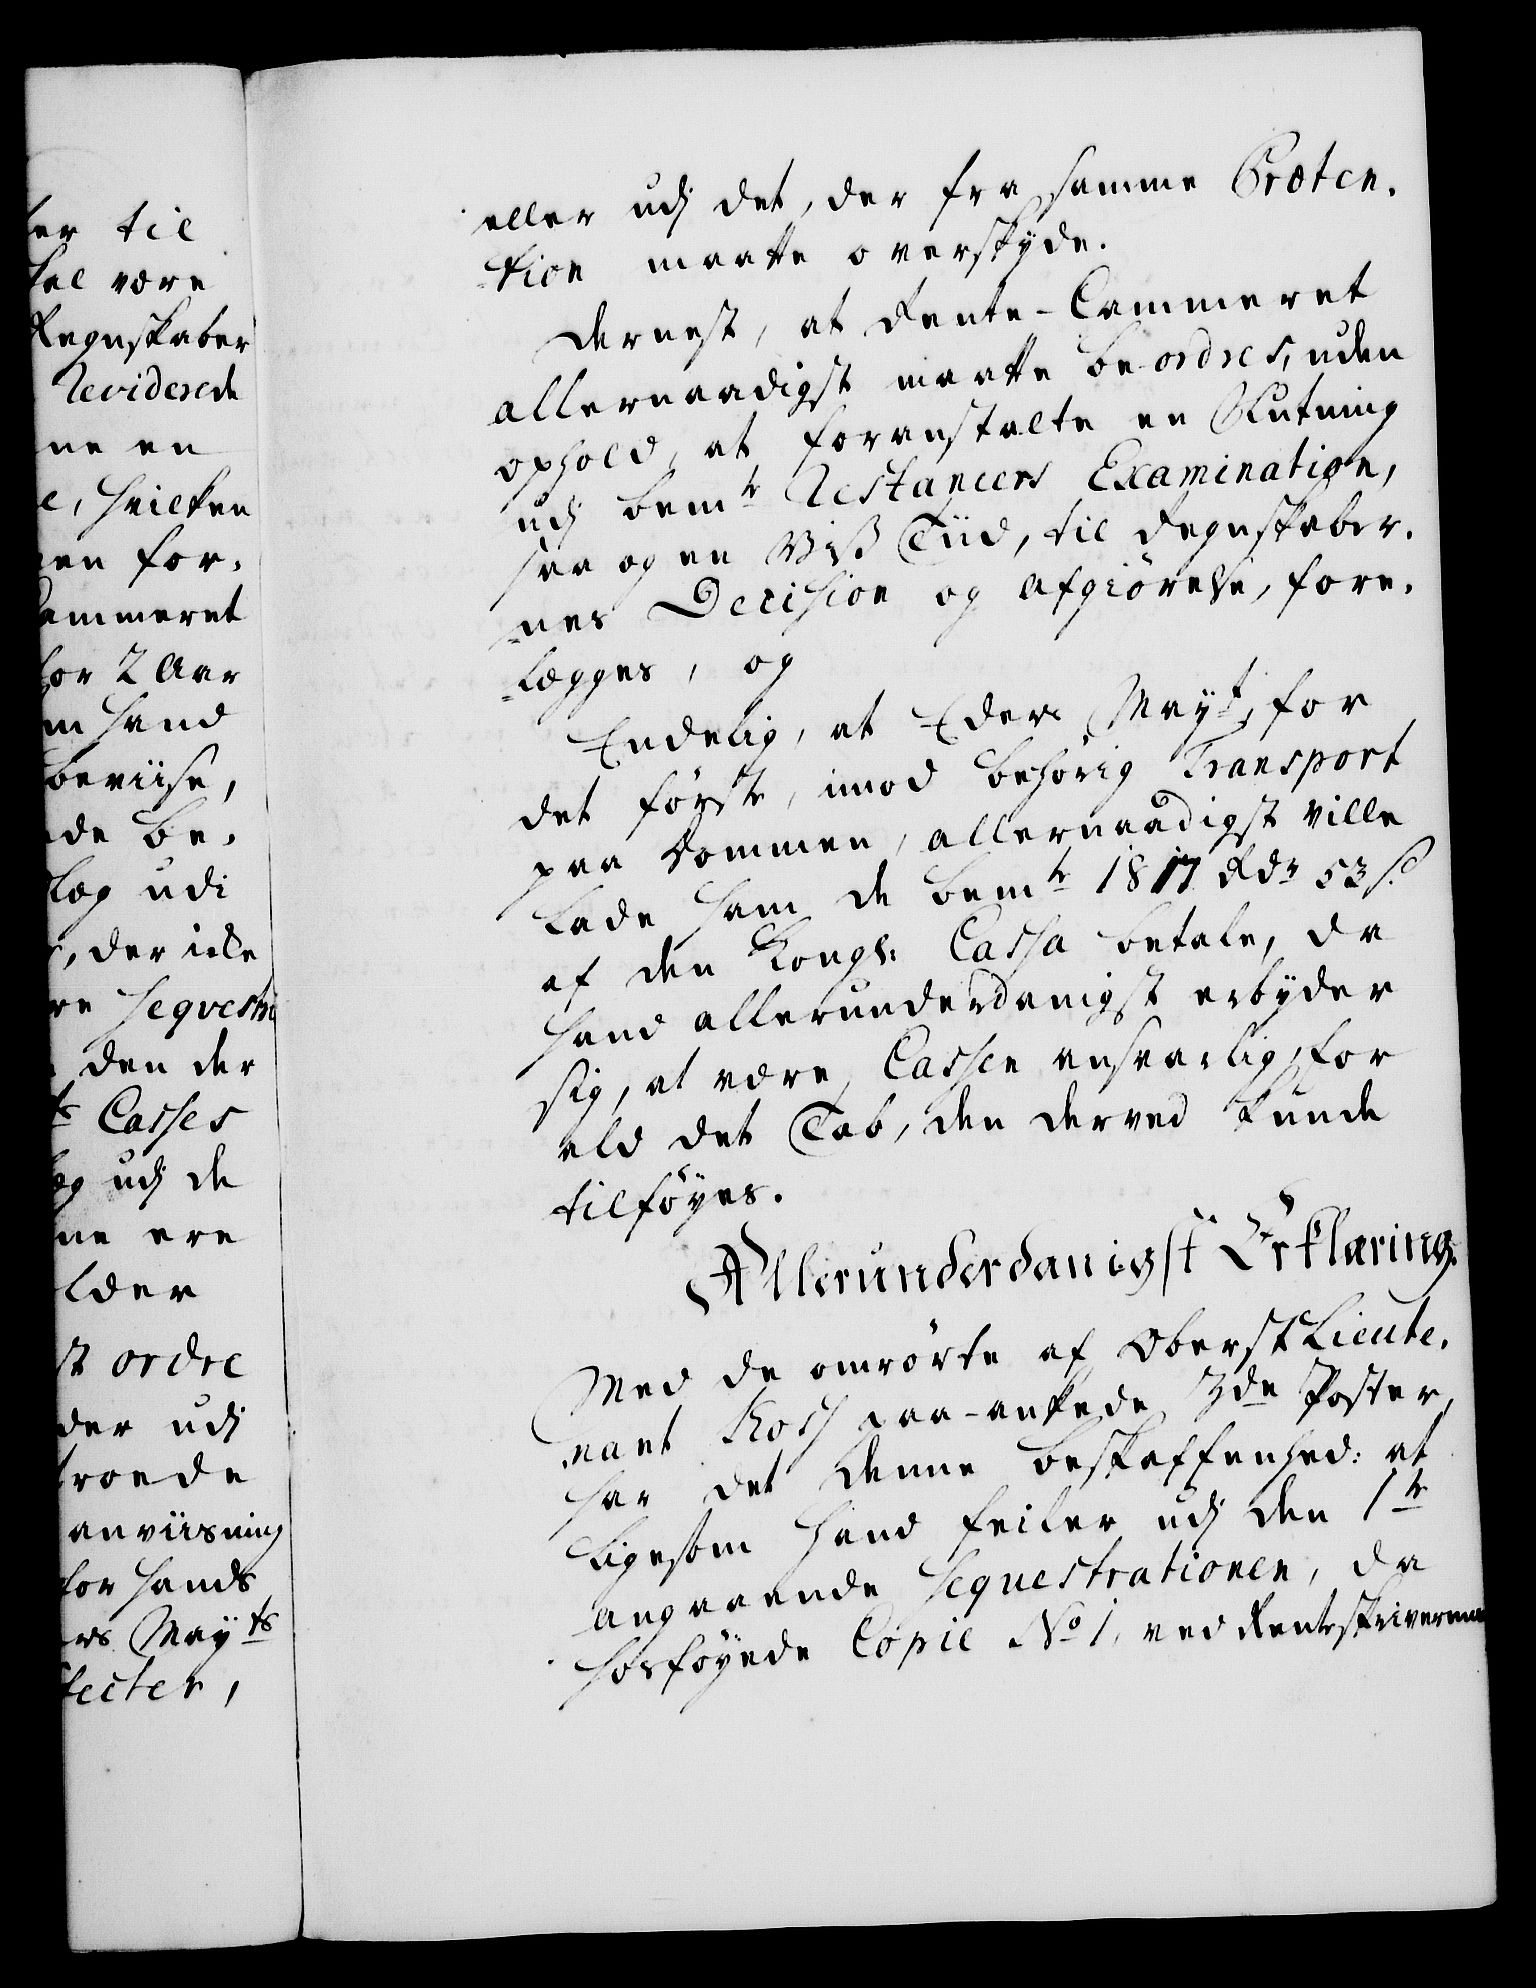 ter til
kal være
Regnskaber
Reviderede
ne en
e, hvilken
gen for-
Cammeret
for 2 Aar
m hand
beviise,
de be-
læg udi
r, der icke
re Seqvestri
den der
ts Casses
læg udj de
ne ere
lder
st ordre
der udj
troede
anviisning
for hands
ers Mayts
fecter,
eller udj det, der fra samme Præten-
tion maatte overskyde.
Dernest, at Rente-Cammeret
allernaadigst maatte beordres, uden
ophold, at foranstalte en Slutning
udj bemte Restancers Examination,
saa og en Viß Tiid, til Regnskaber-
nes Decision og Afgiørelse, fore-
lægges, og
Endelig, at Eders Mayt, for
det første, imod behørig Transport
paa Dommen, allernaadigst ville
lade ham de bemte 1817 Rdr 53 s.
af den Kongl: Cassa betale, da
hand allerunderdanigst erbyder
sig, at være Cassen ansvarlig, for
ald det Tab, den derved kunde
tilføyes.
Allerunderdanigst Erklæring.
Med de omrørte af Oberst Lieute-
nant Kosh paa-ankede 3de Poster,
har det denne beskaffenhed: at
ligesom hand feiler udj den 1te
angaaende Sequestrationen, da
hosføyede Copie No 1, ved Renteskriveren